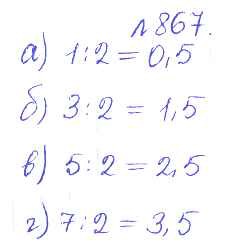 № 867.
а) 1 : 2 = 0,5
б) 3 : 2 = 1,5
в) 5 : 2 = 2,5
г) 7 : 2 = 3,5